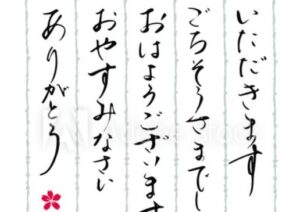 いただきます
ごちそうさまでし
おはようございます
おやすみなさい
ありがとう